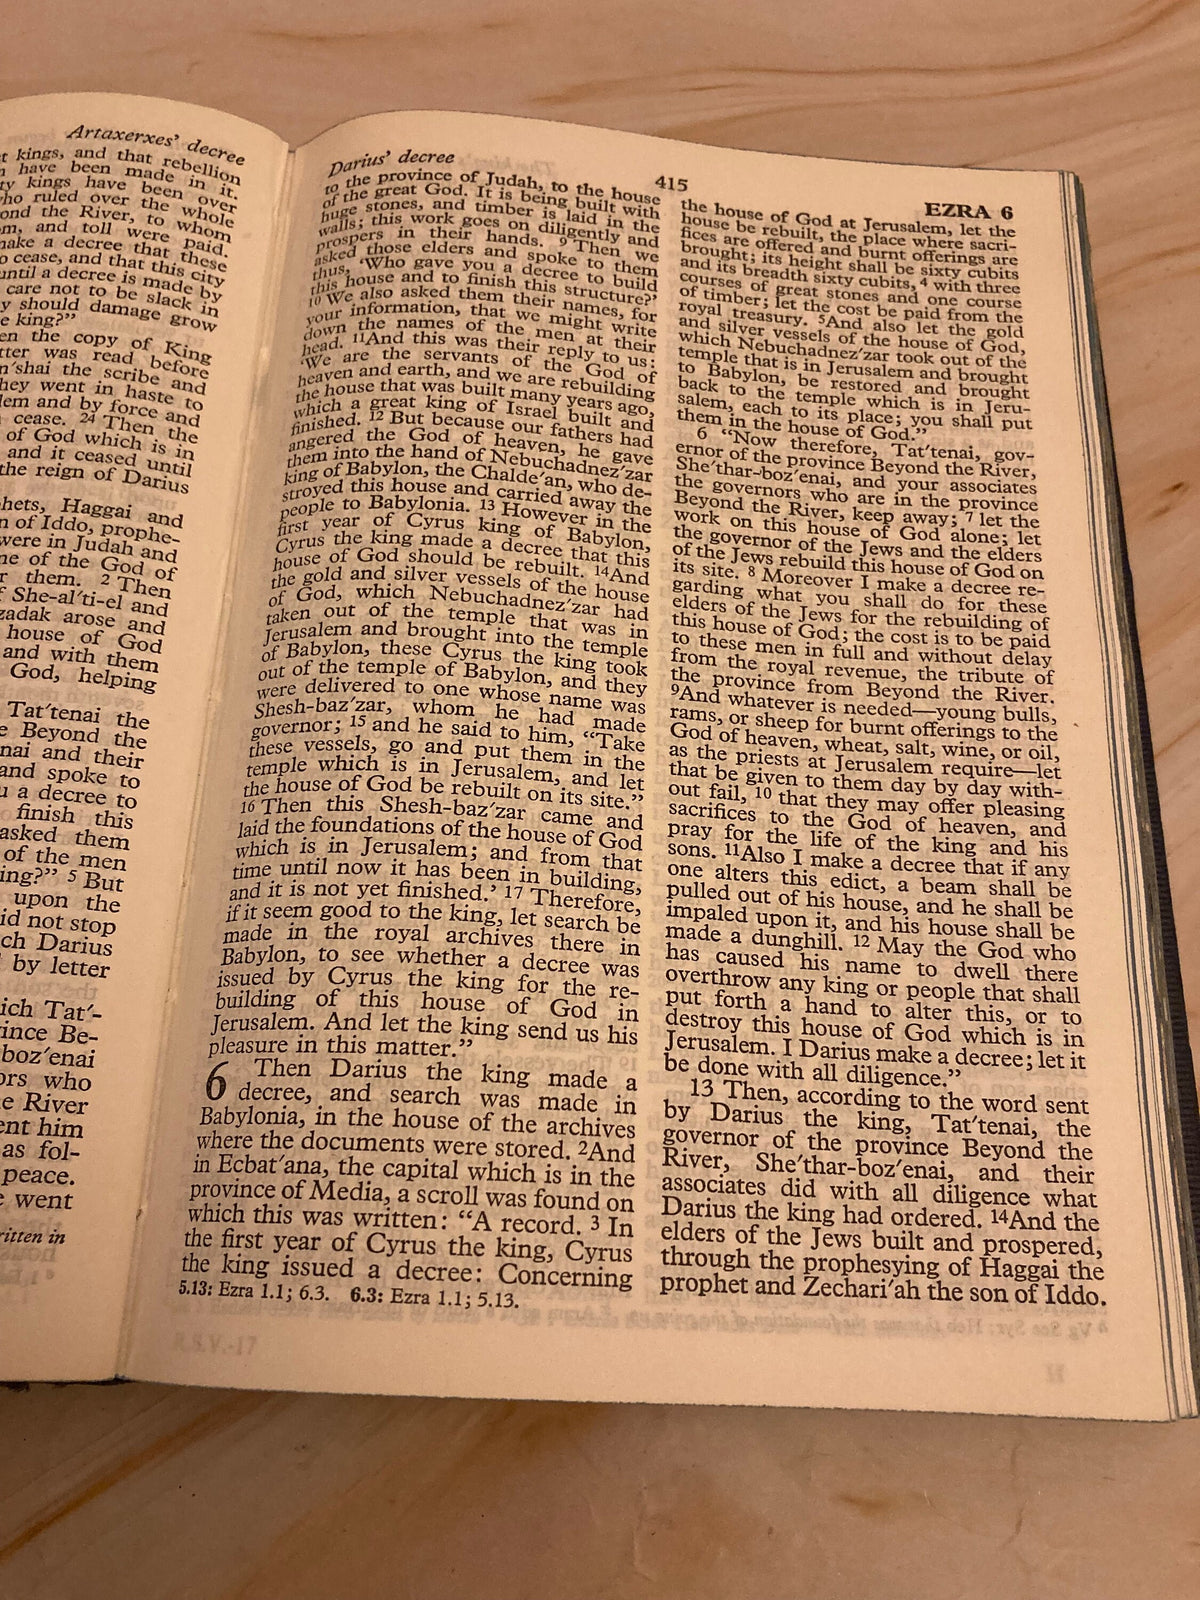 Artaxerxes' decree
t kings, and that rebellion
have been made in it.
ty kings have been over
ho ruled over the whole
ond the River, to whom
m, and toll were paid.
make a decree that these
o cease, and that this city
until a decree is made by
care not to be slack in
y should damage grow
e king?"
en the copy of King
tter was read before
m'shai the scribe and
they went in haste to
lem and by force and
cease. 24 Then the
of God which is in
and it ceased until
the reign of Darius
hets, Haggai and
n of Iddo, prophe-
were in Judah and
me of the God of
r them. 2 Then
f She-al'ti-el and
zadak arose and
house of God
and with them
God, helping
Tat'tenai the
e Beyond the
nai and their
and spoke to
u a decree to
finish this
asked them
of the men
ing?" 5 But
upon the
id not stop
ch Darius
by letter
ich Tat'-
ince Be-
boz'enai
ors who
e River
ent him
as fol-
peace.
e went
ritten in
Darius' decree
415
EZRA 6
to the province of Judah, to the house
of the great God. It is being built with
huge stones, and timber is laid in the
walls; this work goes on diligently and
prospers in their hands. 9 Then we
asked those elders and spoke to them
thus, 'Who gave you a decree to build
this house and to finish this structure?'
10 We also asked them their names, for
your information, that we might write
down the names of the men at their
head. 11And this was their reply to us:
'We are the servants of the God of
heaven and earth, and we are rebuilding
the house that was built many years ago,
which a great king of Israel built and
finished. 12 But because our fathers had
angered the God of heaven, he gave
them into the hand of Nebuchadnez'zar
king of Babylon, the Chalde'an, who de-
stroyed this house and carried away the
people to Babylonia. 13 However in the
first year of Cyrus king of Babylon,
Cyrus the king made a decree that this
house of God should be rebuilt. 14And
the gold and silver vessels of the house
of God, which Nebuchadnez'zar had
taken out of the temple that was in
Jerusalem and brought into the temple
of Babylon, these Cyrus the king took
out of the temple of Babylon, and they
were delivered to one whose name was
Shesh-baz'zar, whom he had made
governor; 15 and he said to him, "Take
these vessels, go and put them in the
temple which is in Jerusalem, and let
the house of God be rebuilt on its site."
16 Then this Shesh-baz'zar came and
laid the foundations of the house of God
which is in Jerusalem; and from that
time until now it has been in building,
and it is not yet finished.' 17 Therefore,
if it seem good to the king, let search be
made in the royal archives there in
Babylon, to see whether a decree was
issued by Cyrus the king for the re-
building of this house of God in
Jerusalem. And let the king send us his
pleasure in this matter."
6 Then Darius the king made a
decree, and search was made in
Babylonia, in the house of the archives
where the documents were stored. 2And
in Ecbat'ana, the capital which is in the
province of Media, a scroll was found on
which this was written: "A record. 3 In
the first year of Cyrus the king, Cyrus
the king issued a decree: Concerning
5.13: Ezra 1.1; 6.3. 6.3: Ezra 1.1; 5.13.
the house of God at Jerusalem, let the
house be rebuilt, the place where sacri-
fices are offered and burnt offerings are
brought; its height shall be sixty cubits
and its breadth sixty cubits, 4 with three
courses of great stones and one course
of timber; let the cost be paid from the
royal treasury. 5And also let the gold
and silver vessels of the house of God,
which Nebuchadnez'zar took out of the
temple that is in Jerusalem and brought
to Babylon, be restored and brought
back to the temple which is in Jeru-
salem, each to its place; you shall put
them in the house of God."
6 "Now therefore, Tat'tenai, gov-
ernor of the province Beyond the River,
She'thar-boz'enai, and your associates
the governors who are in the province
Beyond the River, keep away; 7 let the
work on this house of God alone; let
the governor of the Jews and the elders
of the Jews rebuild this house of God on
its site. 8 Moreover I make a decree re-
garding what you shall do for these
elders of the Jews for the rebuilding of
this house of God; the cost is to be paid
to these men in full and without delay
from the royal revenue, the tribute of
the province from Beyond the River.
9And whatever is needed—young bulls,
rams, or sheep for burnt offerings to the
God of heaven, wheat, salt, wine, or oil,
as the priests at Jerusalem require—let
that be given to them day by day with-
out fail, 10 that they may offer pleasing
sacrifices to the God of heaven, and
pray for the life of the king and his
sons. 11Also I make a decree that if any
one alters this edict, a beam shall be
pulled out of his house, and he shall be
impaled upon it, and his house shall be
made a dunghill. 12 May the God who
has caused his name to dwell there
overthrow any king or people that shall
put forth a hand to alter this, or to
destroy this house of God which is in
Jerusalem. I Darius make a decree; let it
be done with all diligence."
13 Then, according to the word sent
by Darius the king, Tat'tenai, the
governor of the province Beyond the
River, She'thar-boz'enai, and their
associates did with all diligence what
Darius the king had ordered. 14And the
elders of the Jews built and prospered,
through the prophesying of Haggai the
prophet and Zechari'ah the son of Iddo.
R.S.V.-17